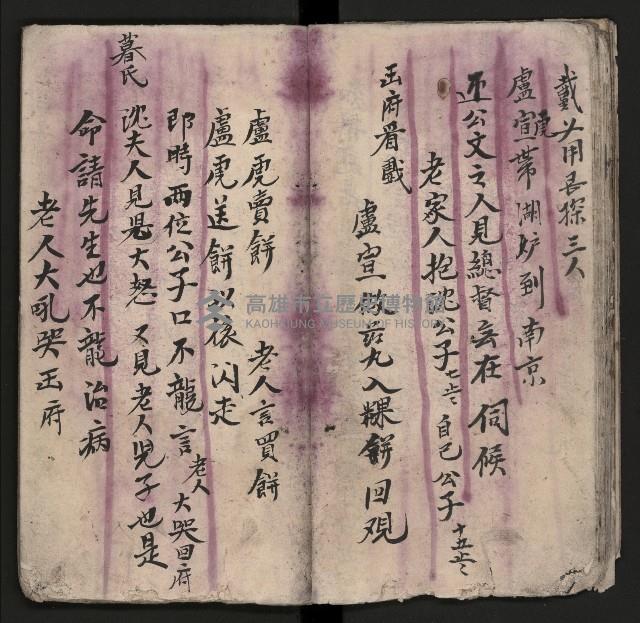 戴公用吾探三人
盧宣帶湖炉到南京
虎
还公文之人見總督会在伺候
老家人抱沈公子七歲 自己公子十五歲
王府看戲
盧宣 九入粿餅回观
盧虎賣餅 老人言買餅
盧虎送餅 閃走
即時兩位公子口不能言 老人大哭回府
暮氏
沈夫人見是大怒 又見老人児子也是
命請先生也不能治病
老人大吼哭王府
高雄市立歷史博物館
KAOHSIUNG MUSEUM OF HISTORY